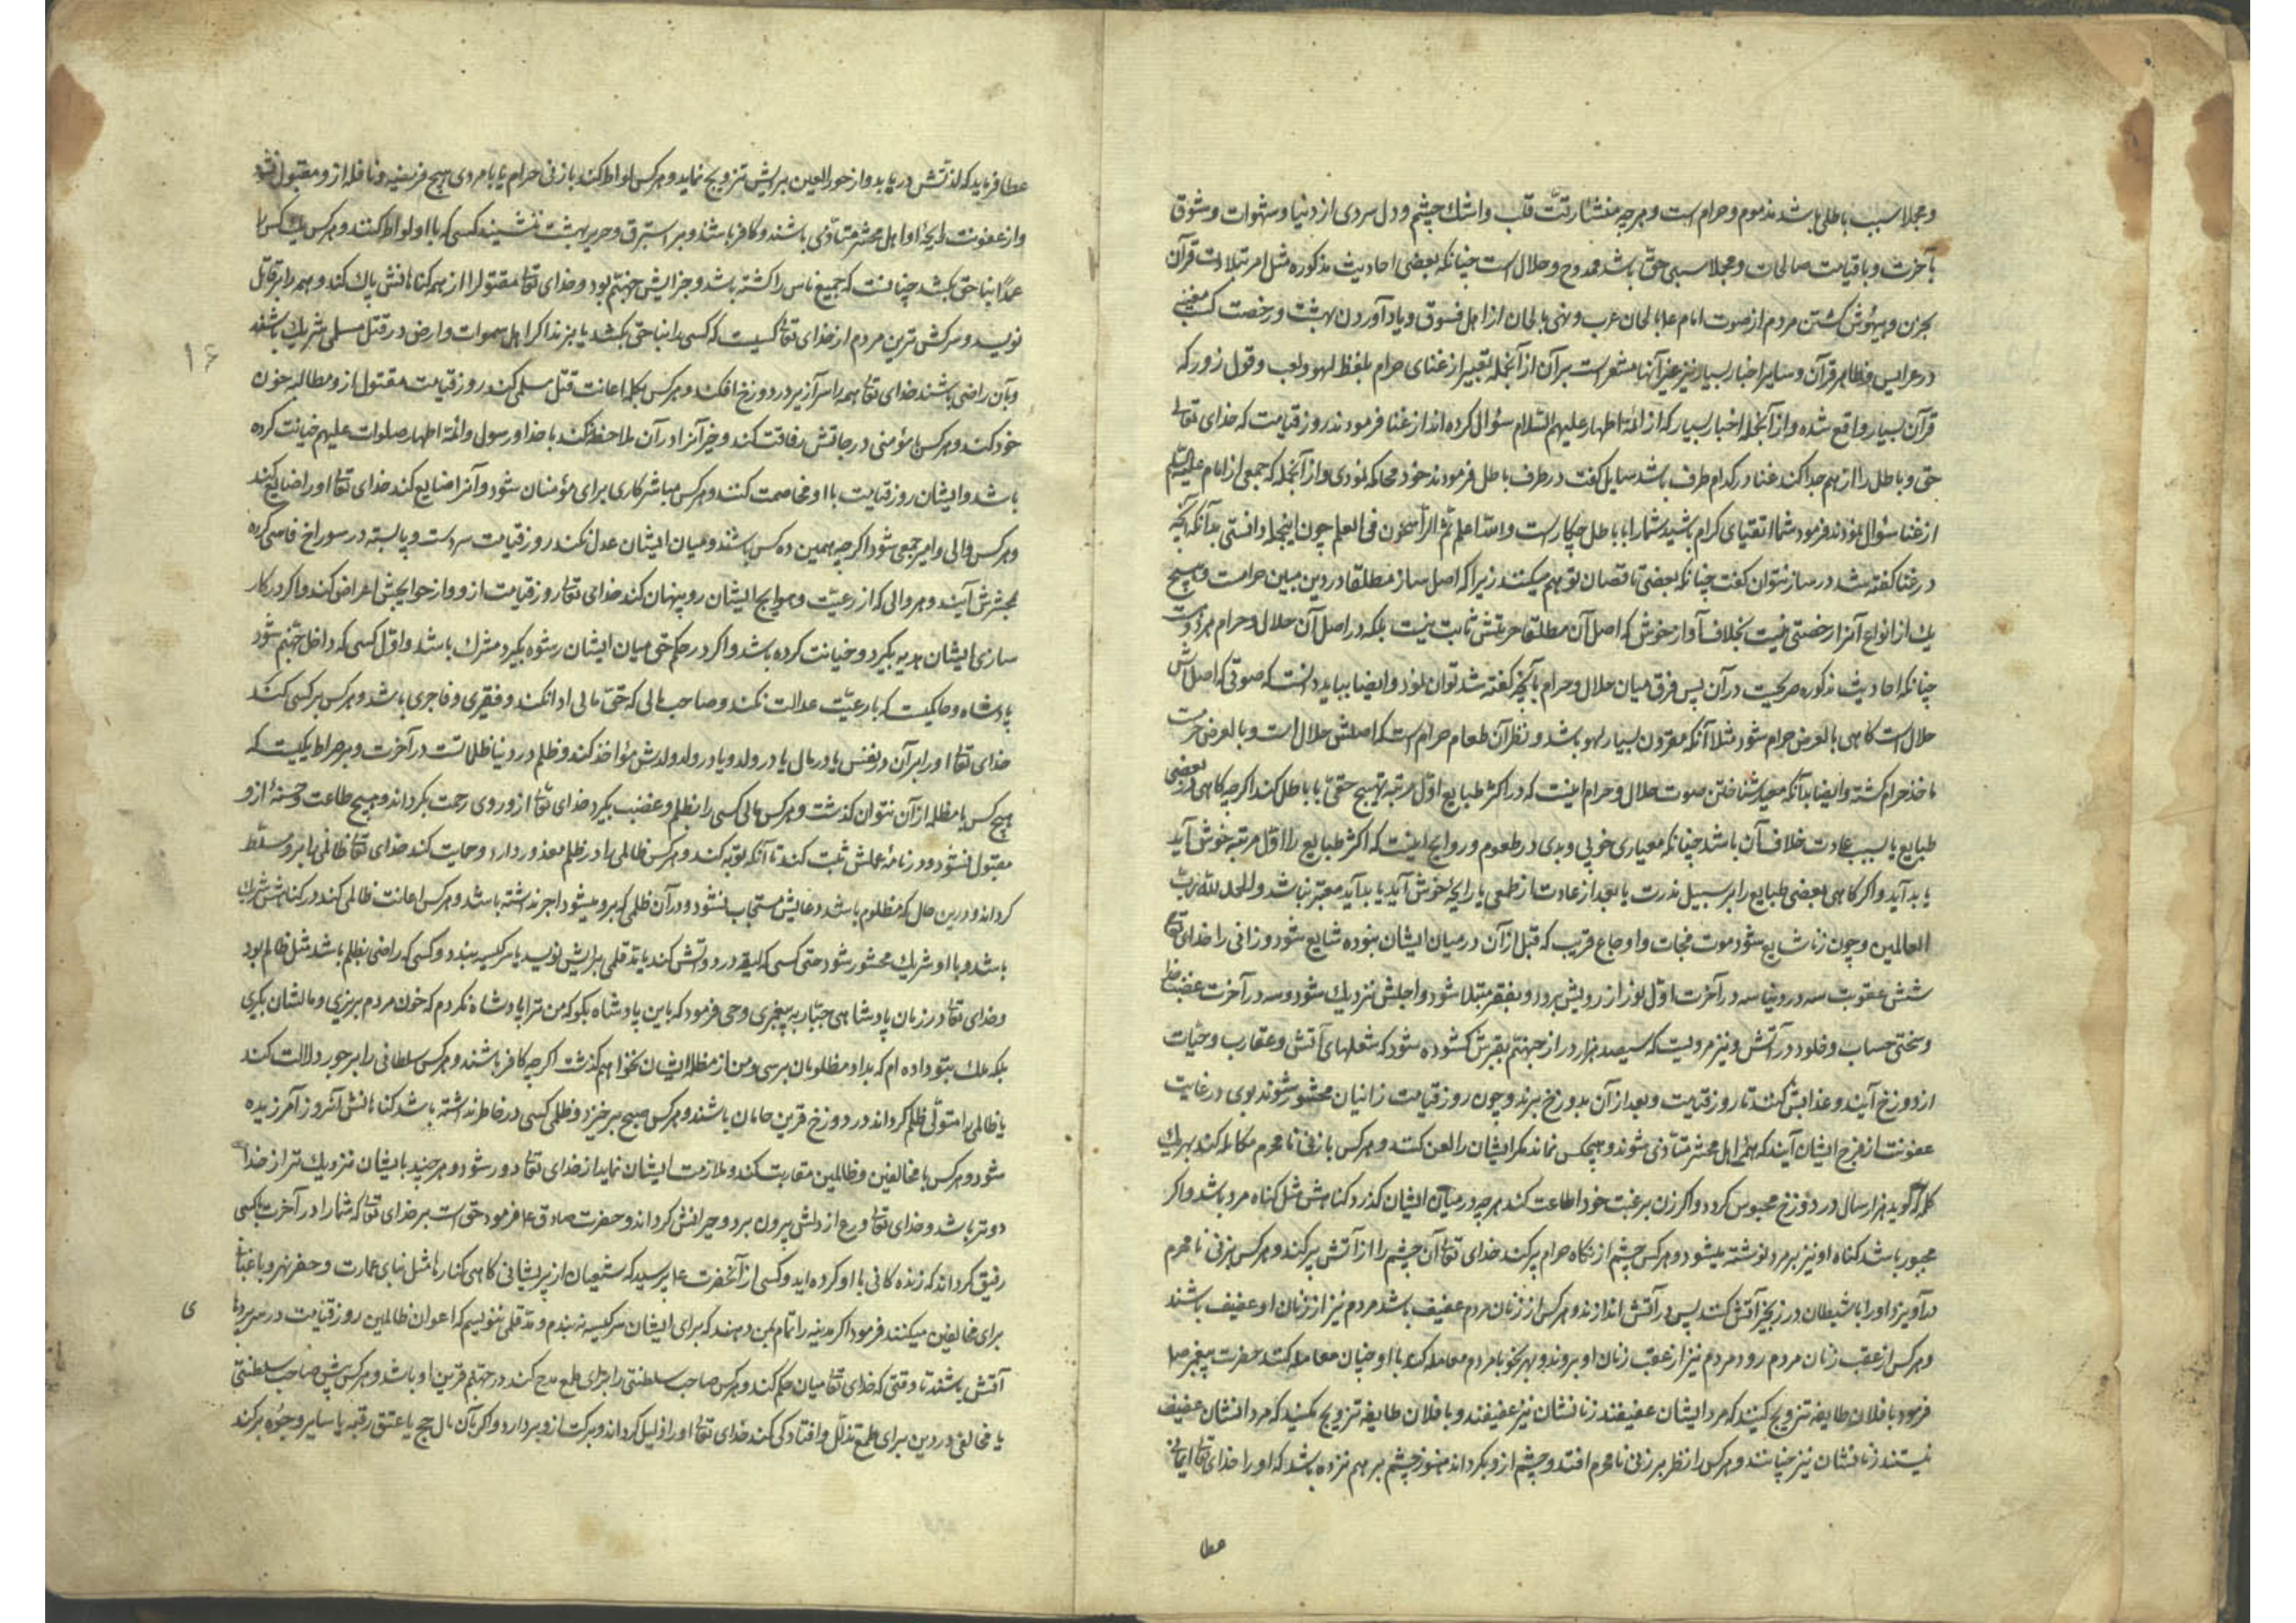 و مجلا سبب باطلی باشد مذموم و حرام است و هر چه منشأ رقّت قلب و اشك چشم و دل سردی از دنیا و شهوات و شوق
بآخرت و باقیات صالحات و مجلا سببی حقّ باشد ممدوح و حلال است چنانكه بعضی احادیث مذكوره مثل امر بتلاوت قرآن
بحزن و بیهوش گشتن مردم از صوت امام ع بالحان عرب و نهی بالحان از اهل فسوق و یاد آوردن بهشت و رخصت كسب مغنیه
در عرایس و ظاهر قرآن و سایر اخبار بسیار نیز غیر آنها مشعر است بر آن از آنجمله تعبیر از غنای حرام بلفظ لهو و لعب و قول زور كه
قرآن بسیار واقع شده و از آنجمله اخبار بسیار كه از ائمه اطهار علیهم السلام سؤال كرده اند از غنا فرمودند روز قیامت كه خدای تعالی
حق و باطل را از هم جدا كند غنا در كدام طرف باشد سایل گفت در طرف باطل فرمودند خود محاكمه نمودی و از آنجمله كه جمعی از امام علیه السلام
از غنا سؤال نمودند فرمود شما اتقیای كرام باشید شما را با باطل چكار است و الله اعلم ثم الراسخون فی العلم چون اینجمله دانستی بدانكه آنچه
در غنا گفته شد در ساز نتوان گفت چنانكه بعضی ناقصان توهم میكنند زیرا كه اصل ساز مطلقا در دین مبین حرامست و هیچ
یك از انواع آنرا رخصتی نیست بخلاف آواز خوش كه اصل آن مطلقا حرمتش ثابت نیست بلكه در اصل آن حلال و حرام هر دو است
چنانكه احادیث مذكوره صریحست در آن پس فرق میان حلال و حرام بآنچه گفته شد توان نمود و ایضا بباید دانست كه صوتی كه اصلش
حلال است گاهی بالعرض حرام شود مثلا آنكه مقرون بسیار لهو باشد و نظر آن طعام حرام است كه اصلش حلال است و بالعرض حرمت
ماخذ حرام گشته و ایضا بدآنكه معیار شناختن صوت حلال و حرام اینست كه در اكثر طبایع اوّل مرتبه تهییج حقّی یا باطل كند اگر چه گاهی در بعضی
طبایع یا بسبب عادت خلاف آن باشد چنانكه معیاری خوبی و بدی در طعوم و روایح اینست كه اكثر طبایع را اوّل مرتبه خوش آید
یا بد آید و اگر گاهی بعضی طبایع را بر سبیل ندرت یا بعد از عادت از طعمی یا رایحهٔ خوش آید یا بد آید معتبر نباشد و الحمد لله رب
العالمین و چون زنا شایع شود موت فجات و اوجاع قریب كه قبل از آن در میان ایشان نبوده شایع شود و زانی را خدای تعالی
شش عقوبت سه در دنیا سه در آخرت اوّل نور از رویش ببرد و بفقر مبتلا شود و اجلش نزدیك شود و سه در آخرت غضب خدا
و سختی حساب و خلود در آتش و نیز مرویست كه سیصد هزار در از جهنّم بقبرش گشوده شود كه شعلهای آتش و عقارب و حیّات
از دوزخ آیند و عذابش كنند تا روز قیامت و بعد از آن بدوزخ برند و چون روز قیامت زانیان محشور شوند بوی در غایت
عفونت از فرج ایشان آیند كه همهٔ اهل محشر متأذی شوند و هیچكس نماند مگر ایشان را لعن كنند و هر كس با زنی نامحرم مكالمه كند بهر یك
كلمه كه گوید هزار سال در دوزخ محبوس گردد و اگر زن برغبت خود اطاعت كند هر چه در میان ایشان گذرد گناهش مثل گناه مرد باشد و اگر
مجبور باشد گناه او نیز بر مرد نوشته میشود و هر كس چشم از نگاه حرام پر كند خدای تعالی آن چشم را از آتش پر كند و هر كس بزنی نامحرم
در آویزد او را با شیطان در زنجیر آتش كنند پس در آتش اندازند و هر كس از زنان مردم عفیف باشد مردم نیز از زنان او عفیف باشند
و هر كس از عقب زنان مردم رود مردم نیز از عقب زنان او بروند و بهر نحو با مردم معامله كند با او چنان معامله كنند حضرت پیغمبر ص
فرمود با فلان طایفه تزویج كنید كه مردانشان عفیفند زنانشان نیز عفیفند و با فلان طایفه تزویج مكنید كه مردانشان عفیف
نیستند زنانشان نیز چنانند و هر كس را نظر بر زنی نامحرم افتد و چشم ازو بگرداند هنوز چشم بر هم نزده باشد كه او را خدای تعالی ایمانی
عطا
عطا فرماید كه لذتش دریابد و از حور العین برایش تزویج نماید و هر كس لواط كند با زنی حرام یا با مردی هیچ فریضه و نافله ازو مقبول نشود
و از عفونت رایحهٔ او اهل محشر متأذی باشند و كافر باشند و بر استبرق و حریر بهشت ننشیند كسی كه با او لواط كنند و هر كس یك كس را
عمدًا بناحق بكشد چنانست كه جمیع ناس را كشته باشد و جزایش جهنّم بود و خدای تعالی مقتول را از همه گناهانش پاك كند و همه را بر قاتل
نویسد و سركش ترین مردم از خدای تعالی كسیست كه كسی را بناحق بكشد یا بزند اگر اهل سموات و ارض در قتل مسلمی شریك باشند
و بآن راضی باشند خدای تعالی همه را سرازیر در دوزخ افكند و هر كس بكلمه اعانت قتل مسلمی كند روز قیامت مقتول ازو مطالبه خون
۱۶
خود كند و هر كس با مؤمنی در حاجتش رفاقت كند و خیر آنرا در آن ملاحظه نكند با خدا و رسول و ائمه اطهار صلوات علیهم خیانت كرده
باشد و ایشان روز قیامت با او مخاصمت كنند و هر كس مباشر كاری برای مؤمنان شود و آنرا ضایع كند خدای تعالی او را ضایع كند
و هر كس والی و امیر جمعی شود اگر چه همین ده كس باشند و میان ایشان عدل نكند روز قیامت سر دست و پا بسته در سوراخ فاسی كرده
بمحشرش آیند و هر والی كه از رعیّت و حوایج ایشان رو پنهان كند خدای تعالی روز قیامت ازو و از حوایجش اعراض كند و اگر در كار
سازی ایشان هدیه بگیرد و خیانت كرده باشد و اگر در حكم حق میان ایشان رشوه بگیرد مشرك باشد و اوّل كسی كه داخل جهنّم شود
پادشاه و حاكمیست كه با رعیّت عدالت نكند و صاحب مالی كه حقّ مالی ادا نكند و فقیری و فاجری باشد و هر كس بر كسی كند
خدای تعالی او را بر آن در نفس یا در مال یا در ولد و یا در ولد ولدش مؤاخذ كند و ظلم در دنیا ظلماتست در آخرت و بر صراط پلیست كه
هیچ كس با مظلمه از آن نتوان گذشت و هر كس مالی كسی را بظلم و غضب بگیرد خدای تعالی ازو روی رحمت بگرداند و هیچ طاعت و حسنهٔ ازو
مقبول نشود و در نامهٔ عملش ثبت نكند تا آنكه توبه كند و هر كس ظالمی را در ظلم معذور دارد و حمایت كند خدای تعالی ظالمی را برو مسلّط
گرداند و درین حال كه مظلوم باشد دعایش مستجاب نشود و در آن ظلمی كه برو میشود اجر نداشته باشد و هر كس اعانت ظالمی كند در گناهش شریك
باشد و با او شریك محشور شود حتی كسی كه لیقه در دواتش كند یا مدّ قلمی برایش نویسد یا سر كیسه ببندد و كسی كه راضی بظلم باشد مثل ظالم بود
و خدای تعالی در زمان پادشاهی جبّار به پیغمبری وحی فرمود كه باین پادشاه بگو كه من ترا پادشاه نكردم كه خون مردم بریزی و مالشان بگیری
بلكه ملك بتو داده ام كه بداد مظلومان برسی و من از مظلمه ایشان نخواهم گذشت اگر چه كافر باشند و هر كس سلطانی را بر جور دلالت كند
یا ظالمی را متولّی ظلم گرداند در دوزخ قرین هامان باشند و هر كس صبح برخیزد و ظلم كسی در خاطر نداشته باشد گناهانش آنروز آمرزیده
شود و هر كس با مخالفین و ظالمین مقاربت كند و ملازمت ایشان نماید از خدای تعالی دور شود و هر چند بایشان نزدیك تر از خدا
دورتر باشد و خدای تعالی ورع از دلش بیرون برد و حیرانش گرداند و حضرت صادق ع فرمود حق است بر خدای تعالی كه شما را در آخرت با كسی
رفیق گرداند كه زندگانی با او كرده اید و كسی از آنحضرت ع پرسید كه شیعیان از پریشانی گاهی كنارها مثل بنای عمارت و حفر نهر و باغبانی
ی
برای مخالفین میكنند فرمود اگر مدینه را تمام بمن دهند كه برای ایشان سر كیسه نه بندم و مدّ قلمی ننویسم كه اعوان ظالمین روز قیامت در سرپردها
آتش باشند تا وقتی كه خدای تعالی میان حكم كند و هر كس صاحب سلطنتی را برای طمع مدح كند در جهنّم قرین او باشد و هر كس پیش صاحب سلطنتی
یا مخالفی در دین برای طمع تذلّل و افتادگی كند خدای تعالی او را ذلیل گرداند و بركت ازو بردارد و اگر بآن مال حج یا عتق رقبه یا سایر وجوه بر كند